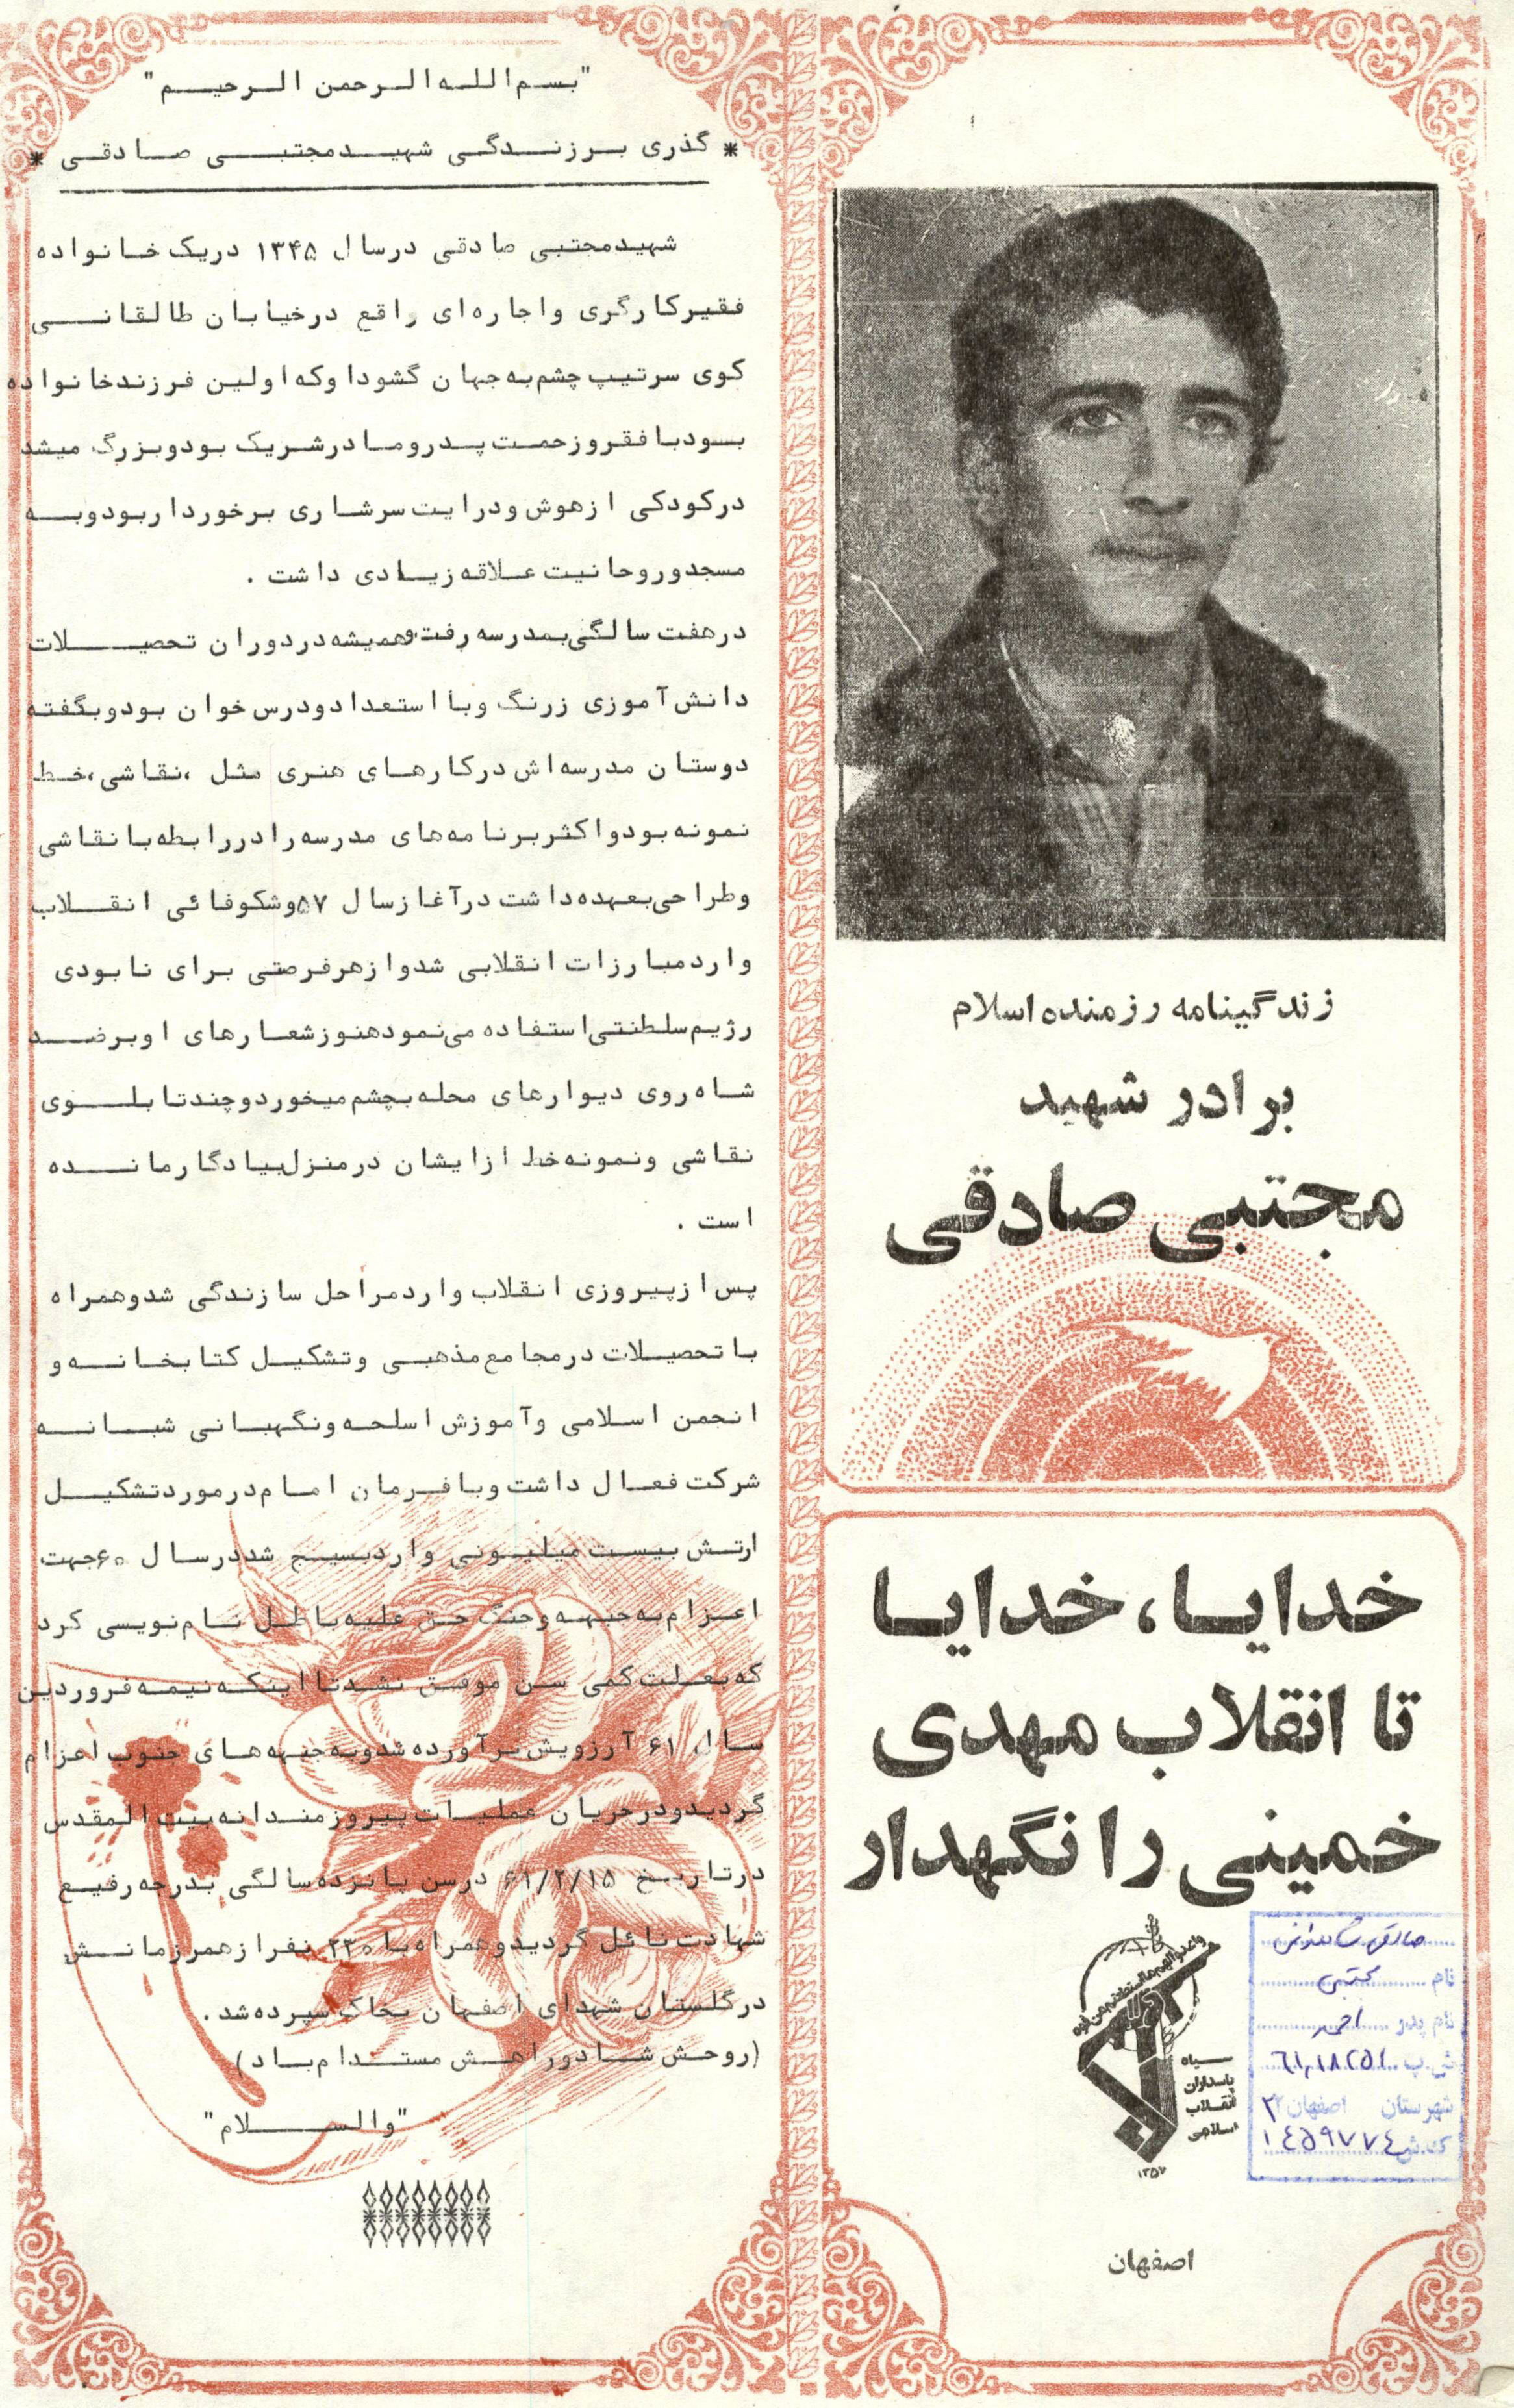 زندگینامه رزمنده اسلام
برادر شهید
مجتبی صادقی
خدایا، خدایا
تا انقلاب مهدی
خمینی را نگهدار
سپاه
پاسداران
انقلاب
اسلامی
۱۳۵۷
نام مجتبی
نام پدر احمد
ش.پ
شهرستان اصفهان
ک.ش ۱۴۵۹۷۷۴
اصفهان
"بسم الله الرحمن الرحیم"
* گذری برزندگی شهیدمجتبی صادقی *
شهیدمجتبی صادقی درسال ۱۳۴۵ دریک خانواده
فقیرکارگری واجاره‌ای راقع درخیابان طالقانی
کوی سرتیپ چشم‌به‌جهان گشودا وکه‌اولین فرزندخانواده
بودبا فقروزحمت پدروما درشریک بودوبزرگ میشد
درکودکی ازهوش ودرایت سرشاری برخورداربودوبه
مسجدوروحانیت علاقه زیادی داشت .
درهفت سالگی‌بمدرسه رفت‌وهمیشه‌دردوران تحصیلات
دانش‌آموزی زرنگ وبااستعدادودرس‌خوان بودوبگفته
دوستان مدرسه‌اش درکارهای هنری مثل ،نقاشی،خط
نمونه بودواکثربرنامه‌های مدرسه‌رادررابطه‌با نقاشی
وطراحی‌بعهده‌داشت درآغازسال ۵۷وشکوفائی انقلاب
واردمبارزات انقلابی شدوازهرفرصتی برای نابودی
رژیم‌سلطنتی‌استفاده می‌نمودهنوزشعارهای اوبرضد
شاه روی دیوارهای محله‌بچشم‌میخوردوچندتابلوی
نقاشی ونمونه‌خط ازایشان درمنزل‌بیادگارمانده
است .
پس ازپیروزی انقلاب واردمراحل سازندگی شدوهمراه
باتحصیلات درمجامع‌مذهبی وتشکیل کتابخانه و
انجمن اسلامی وآموزش اسلحه ونگهبانی شبانه
شرکت فعال داشت وبافرمان امام‌درموردتشکیل
ارتش بیست میلیونی واردبسیج شددرسال ۶۰جهت
اعزام‌به‌جبهه وجنگ حق علیه‌باطل نام‌نویسی کرد
که‌بعلت‌کمی سن موفق نشدتااینکه‌نیمه‌فروردین
سال ۶۱ آرزویش برآورده شدوبه‌جبهه‌های جنوب اعزام
گردیدودرجریان عملیات پیروزمندانه بیت المقدس
درتاریخ ۶۱/۲/۱۵ درسن پانزده‌سالگی بدرجه رفیع
شهادت نائل گردیدوهمراه‌با ۲۳۰ نفرازهمرزمانش
درگلستان شهدای اصفهان بخاک سپرده‌شد .
(روحش شادوراهش مستدام‌باد)
"والسلام"